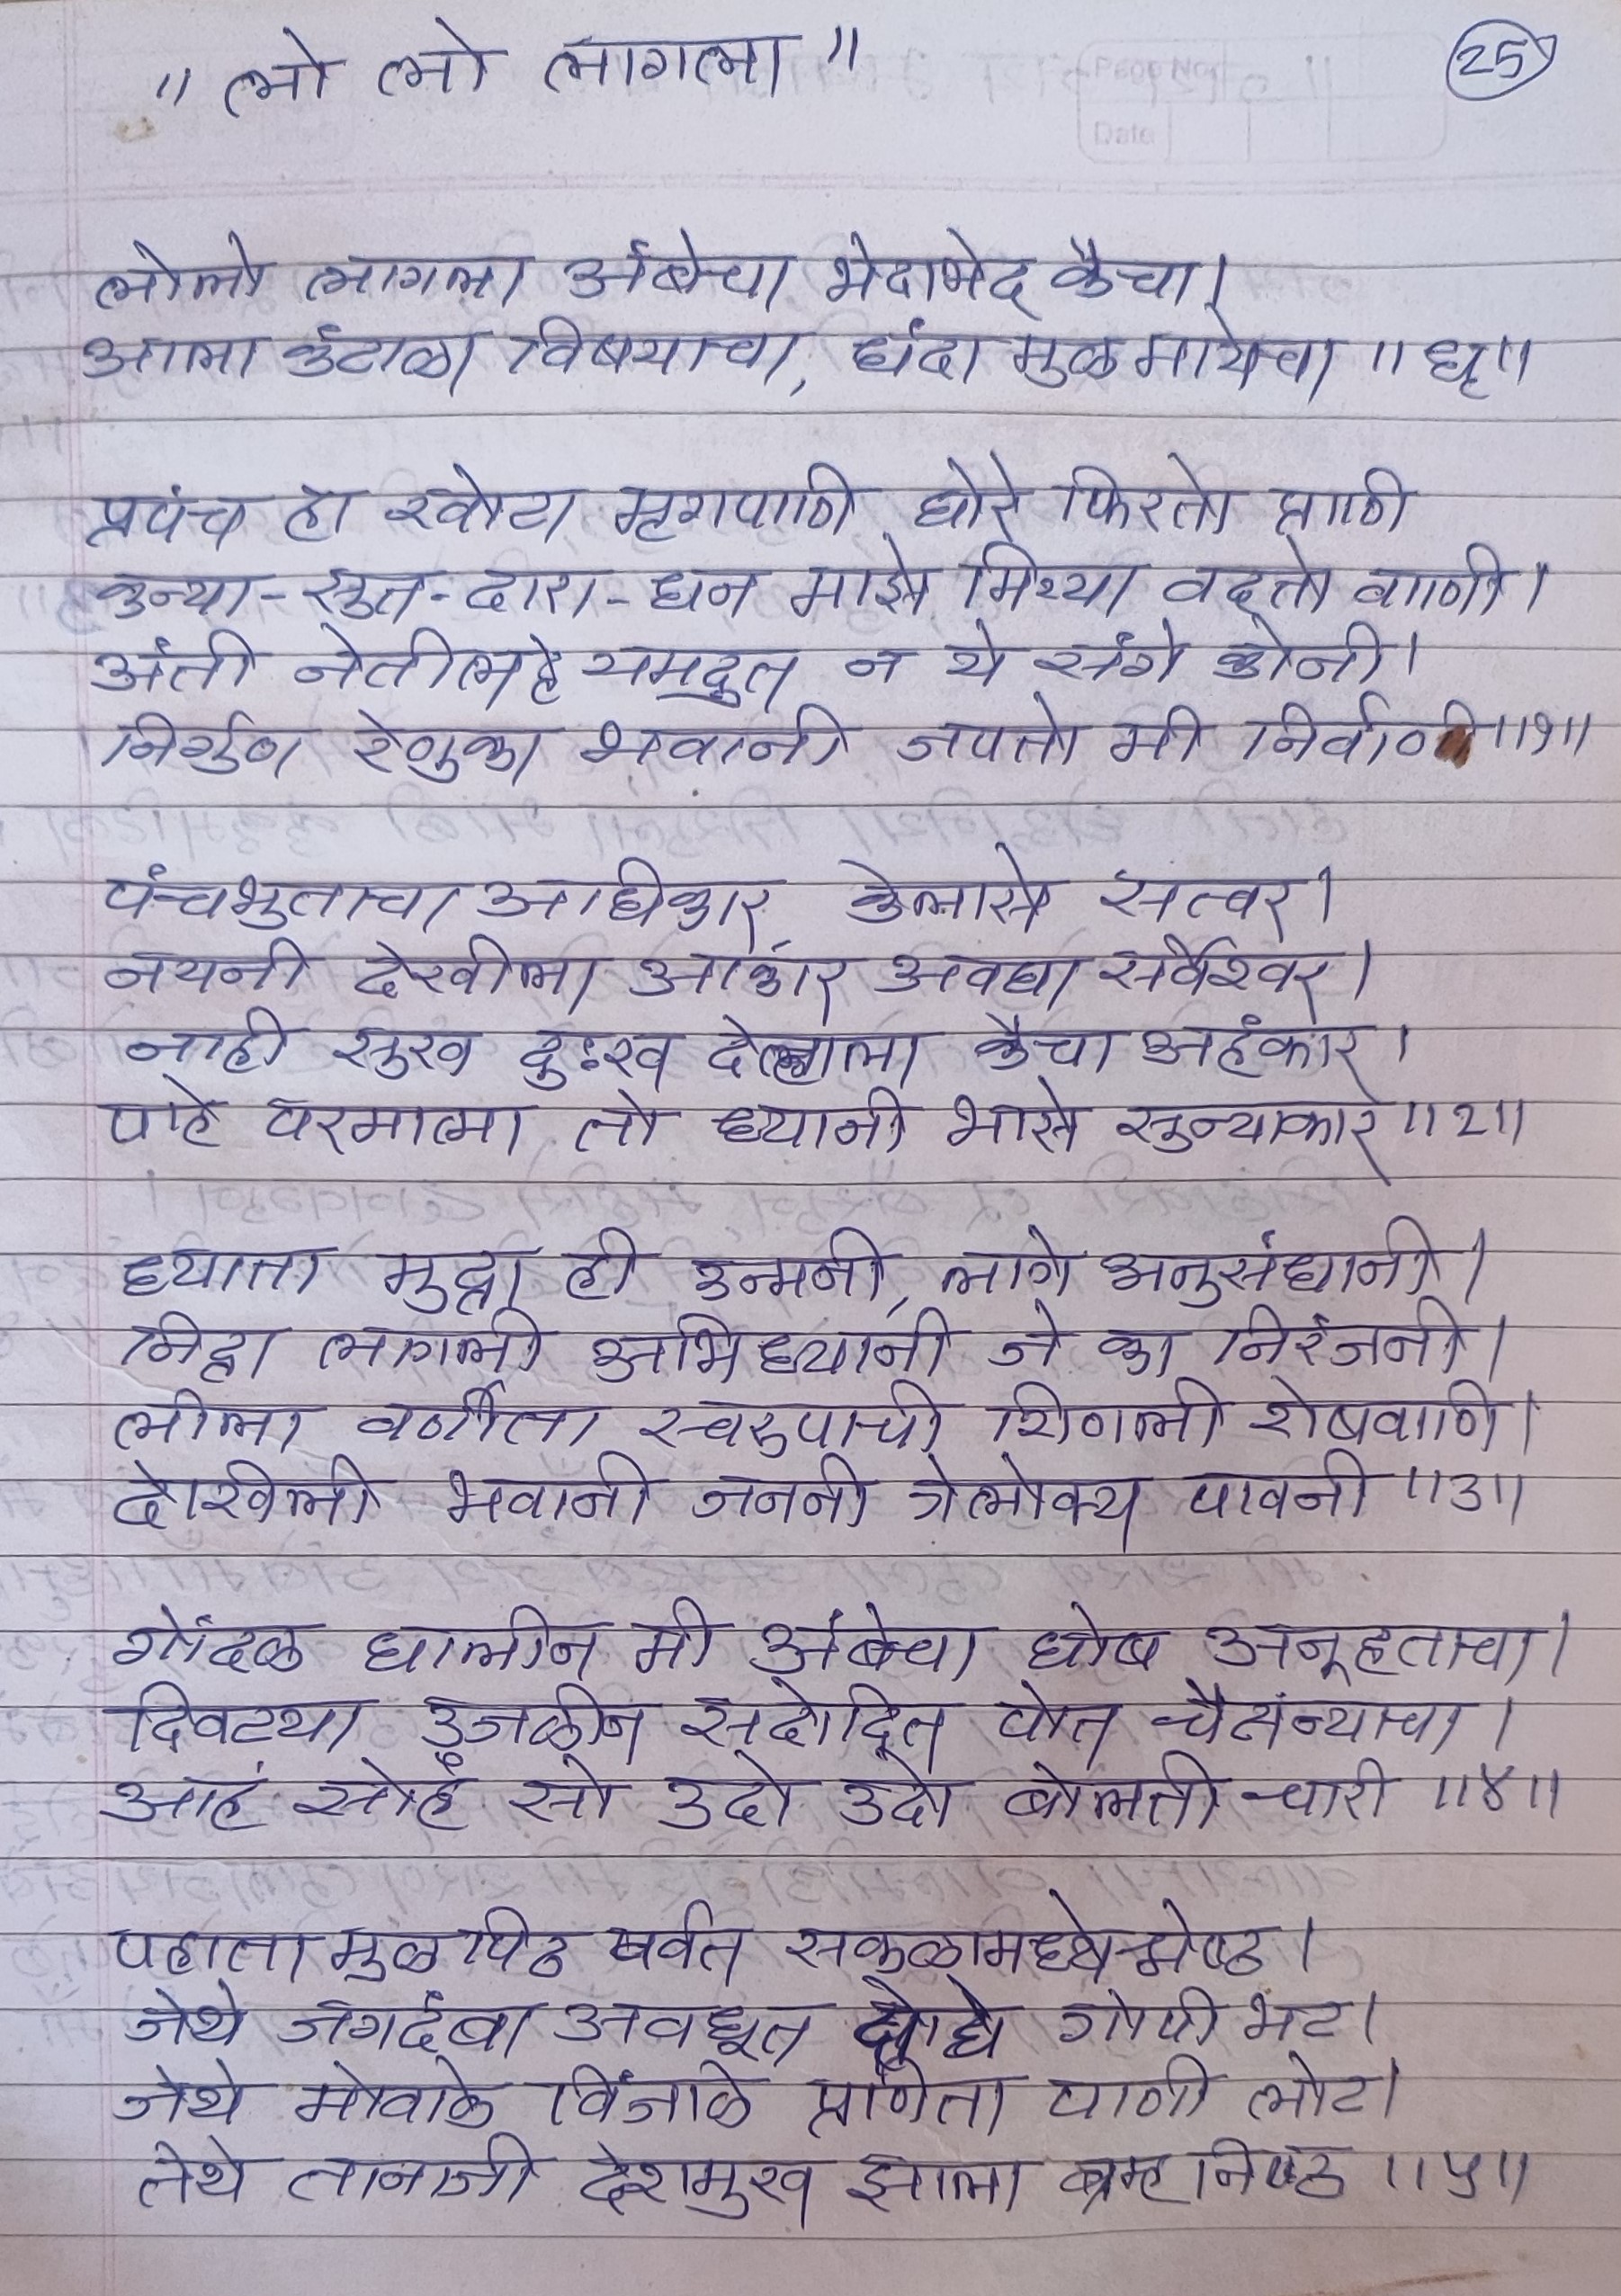 ॥ लो लो लागला ॥
25
लोलो लागला अंबेचा भेदाभेद कैचा।
आला कंटाळा विषयाचा, धंदा मुळ मायेचा ॥धृ॥
प्रपंच हा खोटा मृगपाणि घोरे फिरतो प्राणी
कन्या-सुत-दारा-धन माझे मिथ्या वदतो वाणी।
अंती नेतील हे यमदुत न ये संगे कोनी।
निर्गुण रेणुका भवानी जपतो मी निर्वाणी ॥१॥
पंचभुताचा अधिकार केलासे सत्वर।
नयनी देखीला आकार अवघा सर्वेश्वर।
नाही सुख दुःख देहाला कैचा अहंकार।
पाहे परमात्मा तो ध्यानी भासे सुन्याकार ॥२॥
ध्याता मुद्रा ही उन्मनी, लागे अनुसंधानी।
निद्रा लागली अभिध्यानी जे का निरंजनी।
लीला वर्णीता स्वरुपाची शिणली शेषवाणि।
देखिली भवानी जननी त्रेलोक्य पावनी ॥३॥
गोंदळ घालीन मी अंबेचा घोष अनूहताचा।
दिवट्या उजळीन सदोदित पोत चैतंन्याचा।
आहं सोहं सो उदो उदो बोलती चारी ॥४॥
पहाता मुळ पिठ पर्वत सकुळामध्ये श्रेष्ठ।
जेथे जगदंबा अवधूत दोघे गोपी भट।
जेथे मोवाळे विंजाळे प्रणिता पाणी लोट।
तेथे तानाजी देशमुख झाला ब्रम्हनिष्ठ ॥५॥